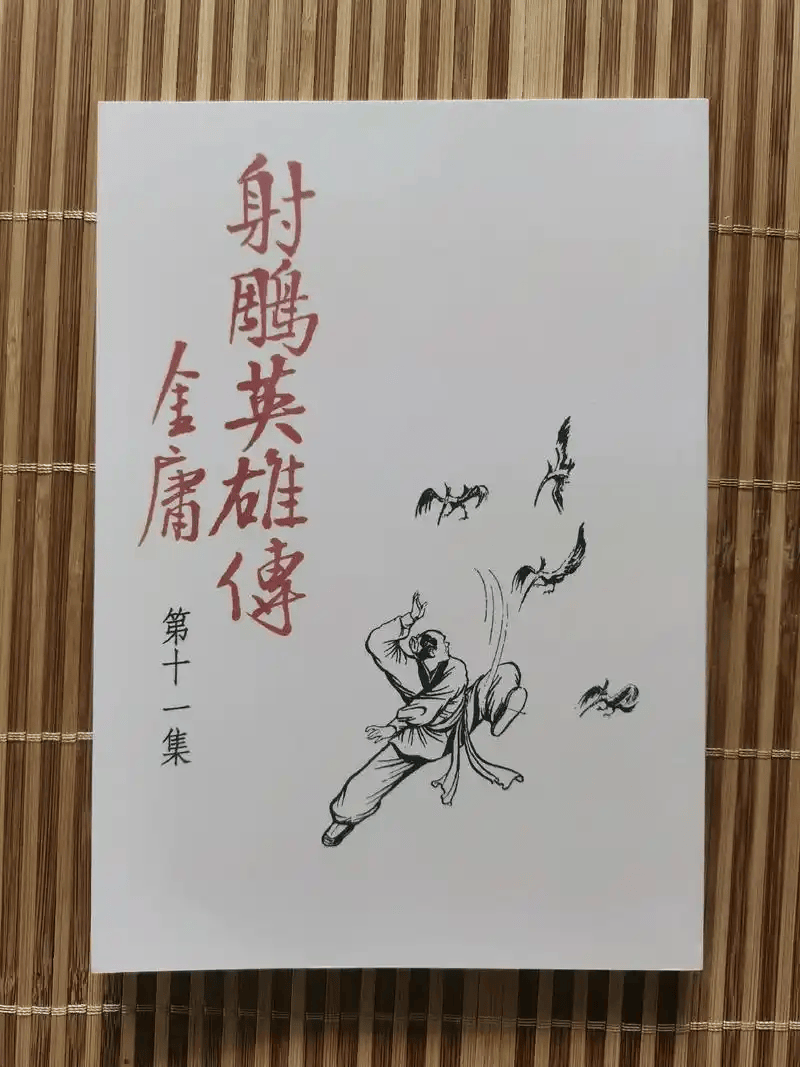 射鵰英雄傳
金庸
第十一集